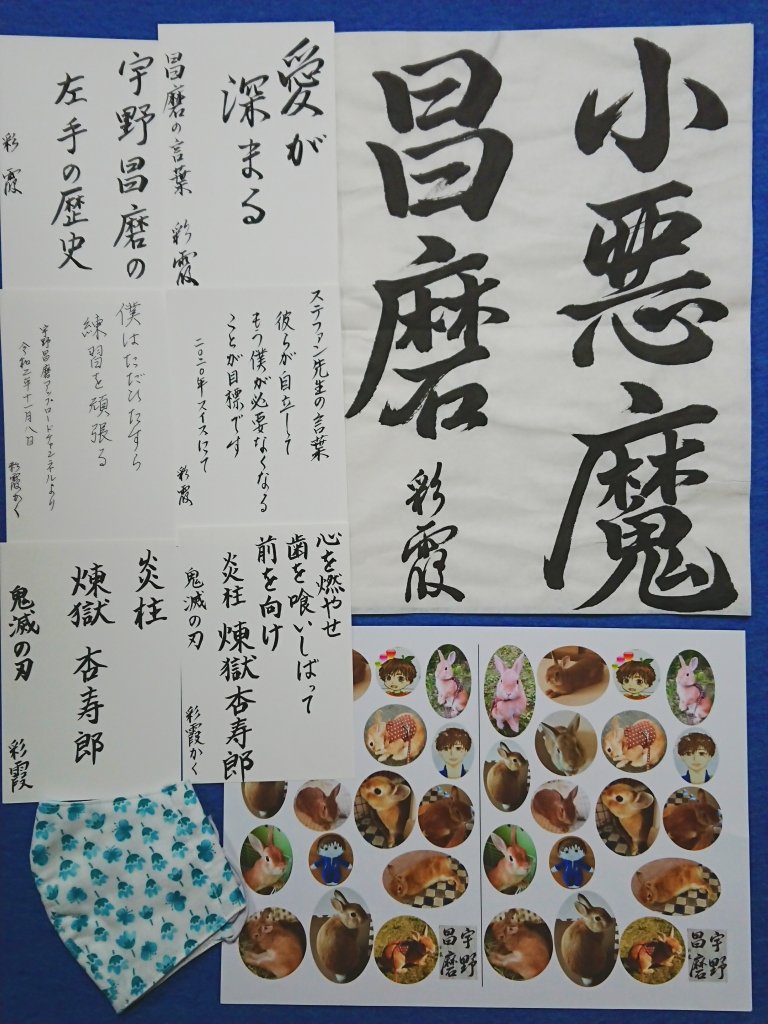 小悪魔
昌磨
彩霞
愛が
深まる
昌磨の言葉
彩霞
宇野昌磨の
左手の歴史
彩霞
ステファン先生の言葉
彼らが自立して
もう僕が必要なくなる
ことが目標です
二〇二〇年スイスにて
彩霞
僕はただひたすら
練習を頑張る
宇野昌磨アップロードチャンネルより
令和二年十一月八日
彩霞かく
心を燃やせ
歯を喰いしばって
前を向け
炎柱 煉獄杏寿郎
鬼滅の刃
彩霞かく
炎柱
煉獄 杏寿郎
鬼滅の刃
彩霞
宇野
昌磨
宇野
昌磨